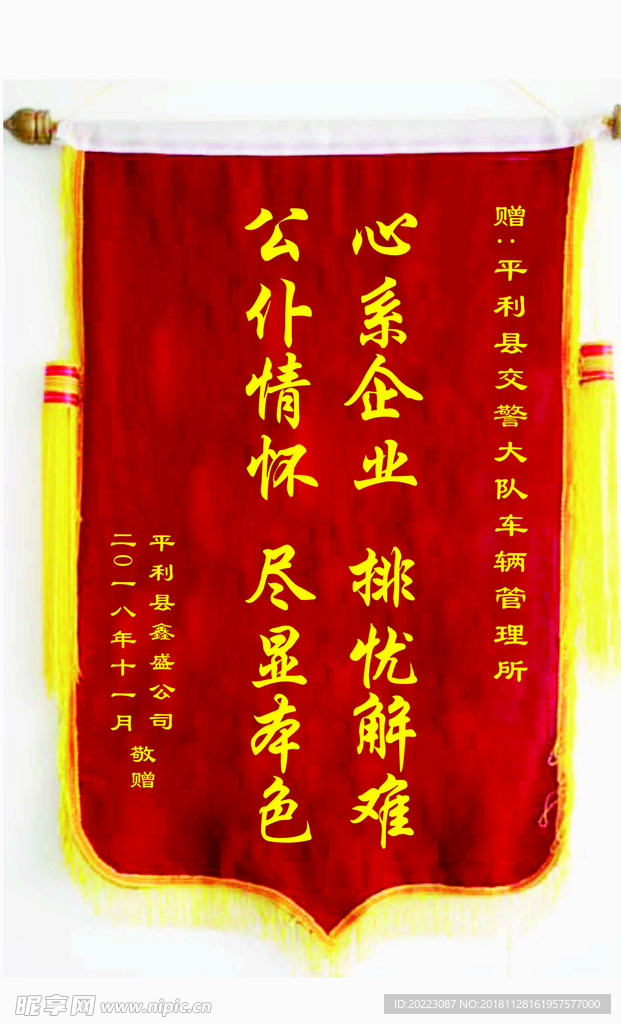 赠：平利县交警大队车辆管理所
心系企业 排忧解难
公仆情怀 尽显本色
平利县鑫盛公司
二〇一八年十一月
敬赠
昵享网 www.nipic.cn
ID:20223087 NO:20181128161957577000